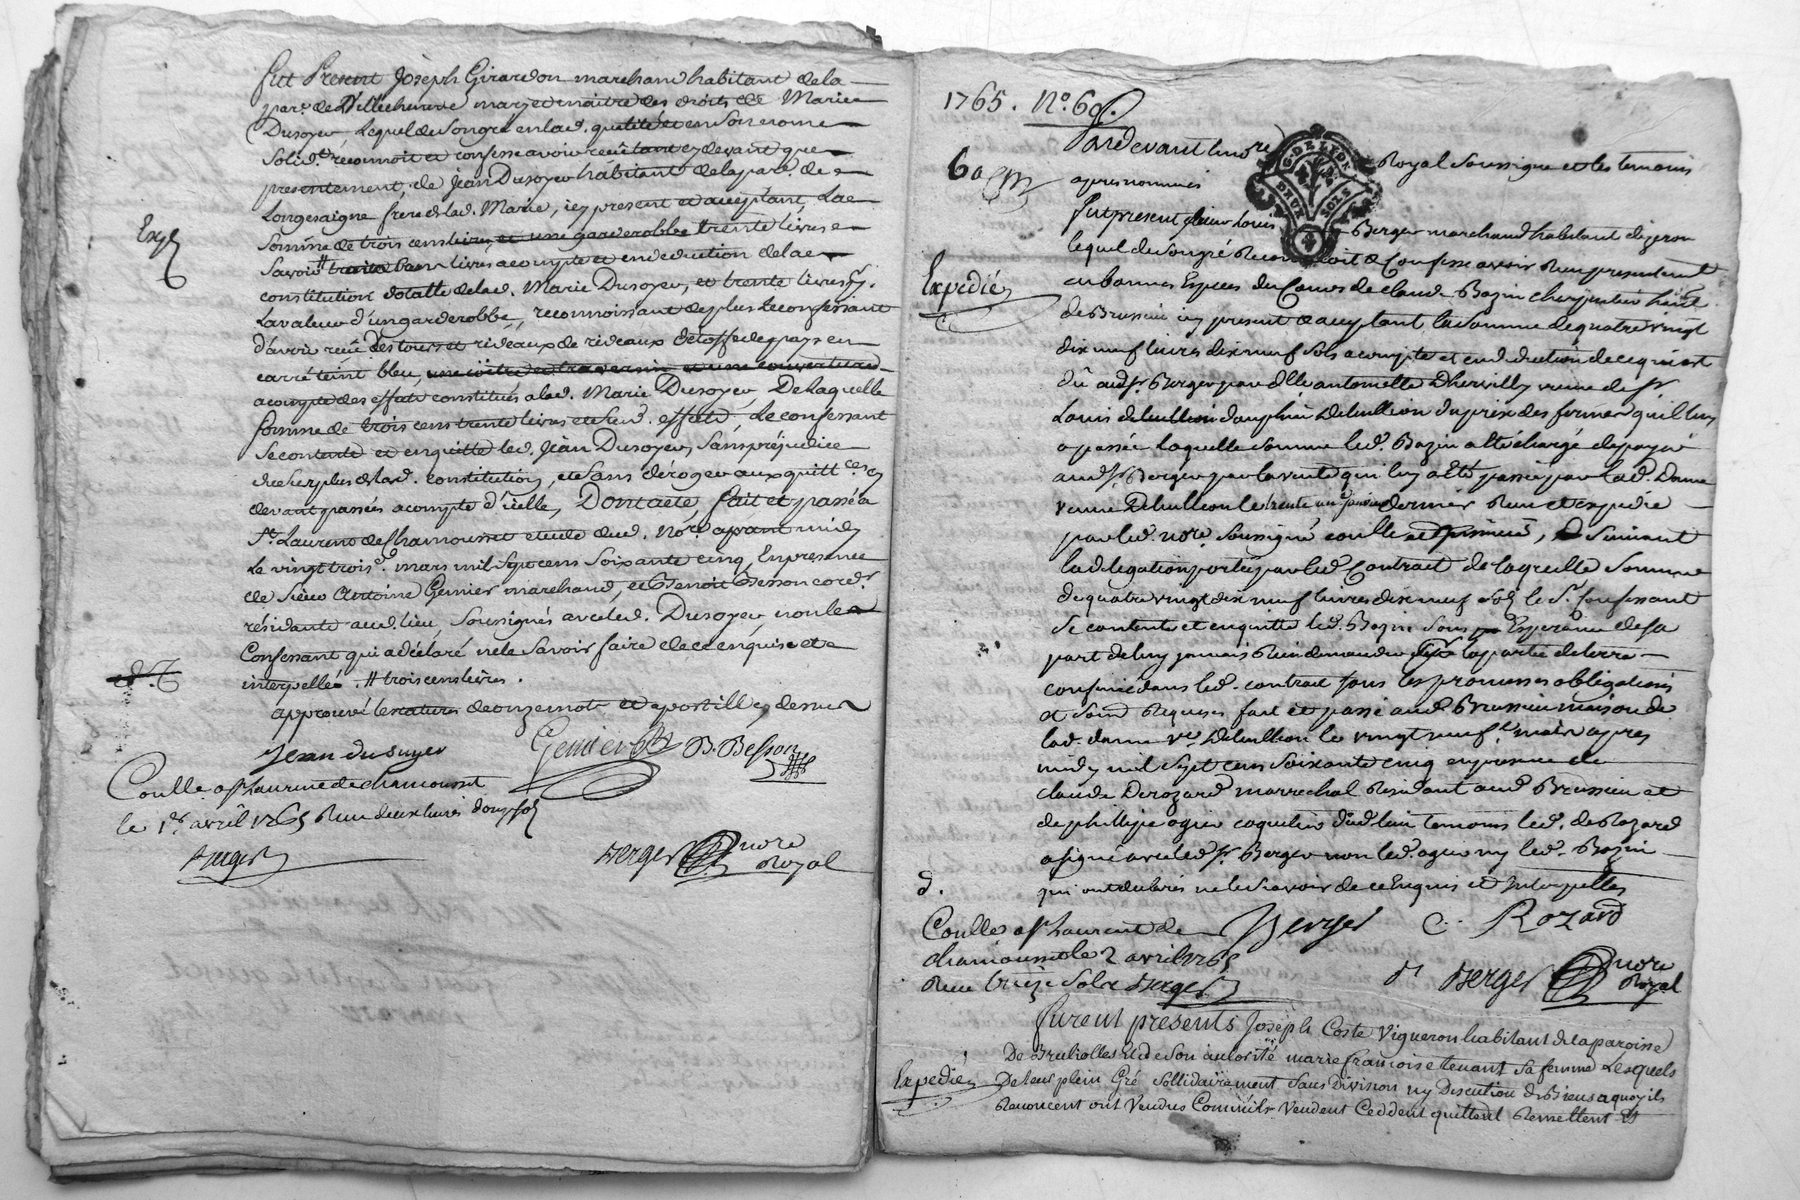 fut Present Joseph Girardon marchand habitant de la
par. de Villecheneve mary et maitre des droits de Marie
Dusoyer, Lequel de Son gré en lad. qualité et en Son nom
Solid.t reconnoit et confesse avoir reçû tant cy devant que
presentement, de Jean Dusoyer habitant de la par. de
Longesaigne frere de lad. Marie, icy present et acceptant, La
Somme de trois cens livres et une garderobbe trente livres
Savoir # livres acompte et en deduction de la
constitution dotalle de lad. Marie Dusoyer, et trente livres
La valeur d'un garderobbe, reconnoissant de plus Le confessant
d'avoir reçû des tours et rideaux de rideaux d'etoffe de pays en
carré teint bleu, une et une couverture
acompte des effets constitués a lad. Marie Dusoyer De Laquelle
Somme de trois cens trente livres et desd. effets Le confessant
Se contente et en quitte led. Jean Dusoyer, Sans préjudice
du Surplus de lad. constitution, et Sans deroger aux quitt.ces
devant passées acompte d'icelle, Dont acte, fait et passé a
St Laurens de Chamousset etude dud. No.re avant midy
Le vingt trois mars mil Sept cens Soixante cinq, En presence
de Sieur Antoine Genier marchand, et Benoit Besson cord.r
résidants aud. lieu, Soussignés avec led. Dusoyer, non le
Confessant qui a déclaré ne le Savoir faire de ce enquis et
interpellé. # trois cens livres.
approuvé la rature de onze mots et apostille cy dessus
Exp
Jean dusuyer
Genier
B. Besson
Conllé a St Laurent de chamousset
le 1er avril 1765 Reçu deux livres
Berger
Berger nore
Royal
1765. No. 60.
60
Pardevant le nore Royal Soussigné et les temoins
apres nommés
G. DE LYON
DEUX SOLS
fut present Sieur Louis Berger marchand habitant
lequel de Son gré Reconnoit et Confesse avoir Reçu presentement
en bonnes Especes du Cours de claude Bazin charpentier habit
de Brussieu icy present et acceptant la Somme de quatre vingt
dix neuf livres dix neuf Sols acompte et en deduction de ce qui est
dû aud. Sr Berger par dlle antoinette Dhervilly veuve de Sr
Louis
a passée Laquelle Somme led. Bazin a été chargé de payer
aud. Sr Berger par la vente qui luy a été passée par lad. Dame
veuve dernier Reçu et expedié
par led. nore Soussigné, Suivant
la delegation portée par led. Contrat de laquelle Somme
de quatre vingt dix neuf livres dix neuf Sols le Sr Confessant
Se contente et en quitte led. Bazin Sous Esperance de Sa
part de luy jamais Rien demander la partie de terre
confinée dans led. contrat Sous les promesses obligations
et Soumis Requises fait et passé aud. Brussieu maison de
lad. dame Ve le vingt neuf mars apres
midy mil Sept cens Soixante cinq en presence de
claude Derozard marrechal Residant aud. Brussieu et
de phillipe ogier dud. lieu temoins led. deRozard
a Signé avec led. Sr Berger non led. ogier ny led. Bazin
qui ont declarés ne le Savoir de ce Enquis et Interpellés
Expedié
d.
Conllé a St Laurent de
chamousset le 2 avril 1765
Reçu treize Sols Berger
Berger
C. Rozard
Berger nore
Royal
Furent presents Joseph Coste Vigneron habitant de la paroisse
De Brullolles Et de Son autorité marie francoise tenant Sa femme Lesquels
De leur plein Gré Sollidairement Sans Division ny Discution de Biens a quoy ils
Renoncent ont Vendus Comm'ils Vendent Ceddent quittent Remettent
Expedié